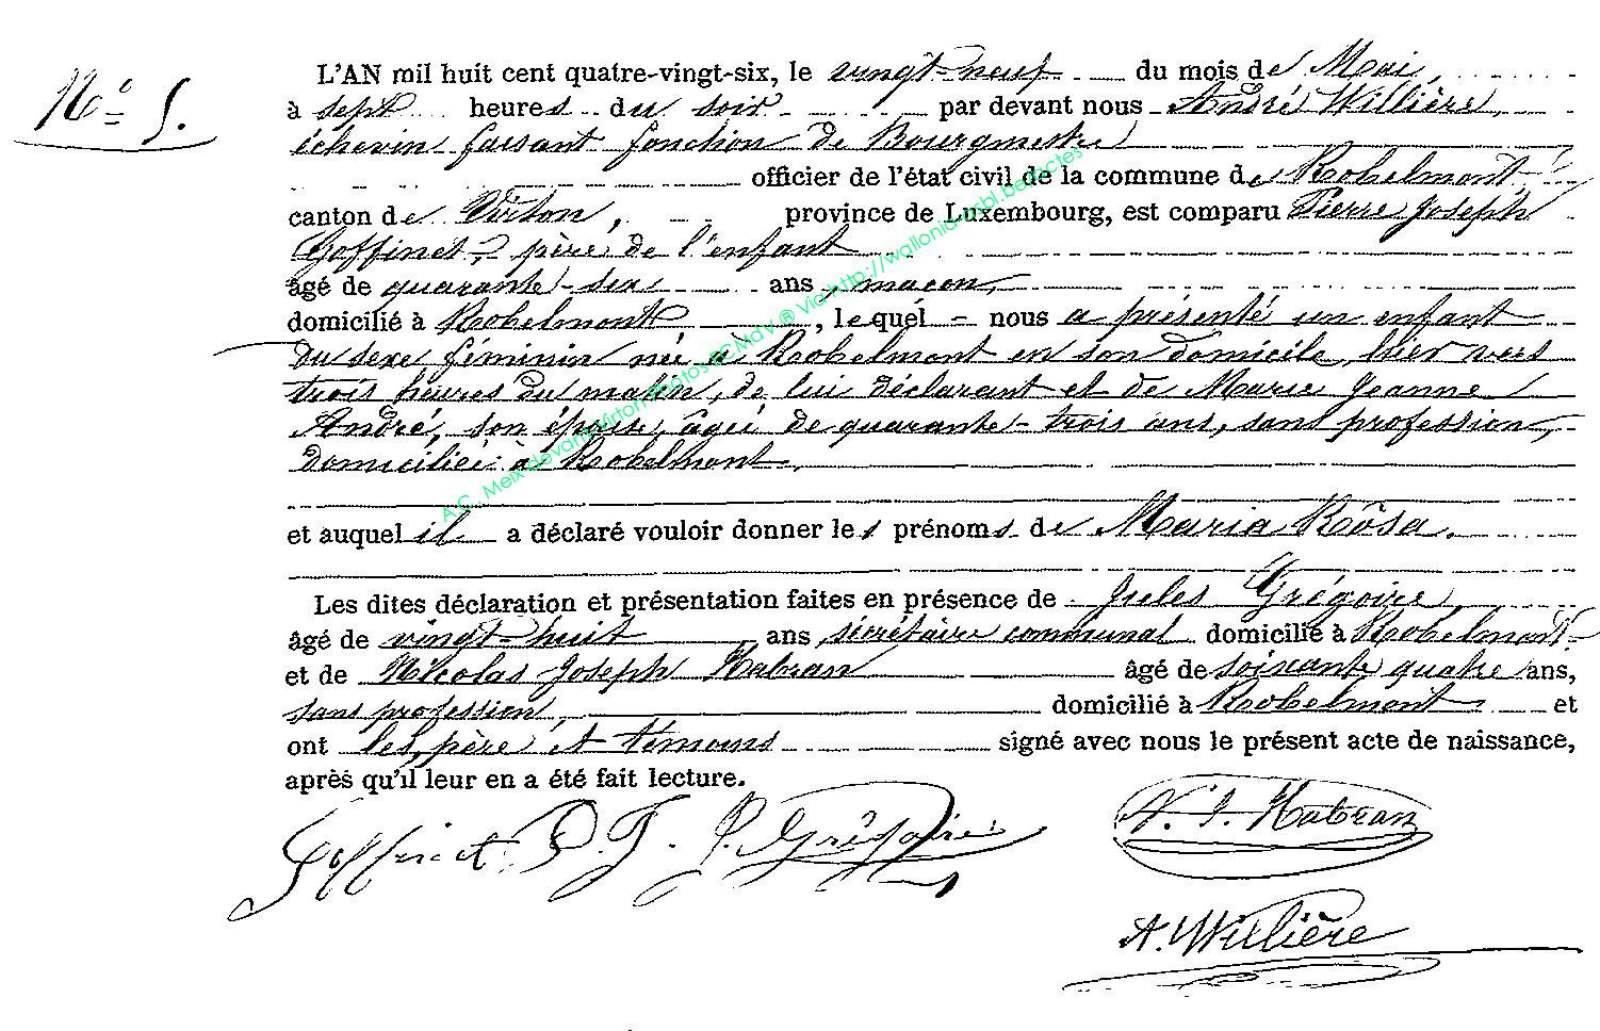 N° 5.
L'AN mil huit cent quatre-vingt-six, le vingt-neuf du mois de Mai,
à sept heures du soir par devant nous André Willière,
échevin faisant fonction de Bourgmestre
officier de l'état civil de la commune de Robelmont
canton de Virton, province de Luxembourg, est comparu Pierre Joseph
Goffinet, père de l'enfant
âgé de quarante-six ans, maçon,
domicilié à Robelmont, lequel nous a présenté un enfant
du sexe féminin née à Robelmont en son domicile, hier vers
trois heures du matin, de lui déclarant et de Marie Jeanne
André, son épouse, âgée de quarante-trois ans, sans profession,
domiciliée à Robelmont.
et auquel il a déclaré vouloir donner les prénoms de Maria Rôsa.
Les dites déclaration et présentation faites en présence de Jules Grégoire
âgé de vingt-huit ans, sécrétaire communal domicilié à Robelmont
et de Nicolas Joseph Habran âgé de soixante quatre ans,
sans profession, domicilié à Robelmont et
ont les, père et témoins signé avec nous le présent acte de naissance,
après qu'il leur en a été fait lecture.
Goffinet P. J. J. Grégoire N. J. Habran
A. Willière
A.C. Meix-devant-Virton Photos © CMdV ® Via http://wallonia-asbl.be/actes